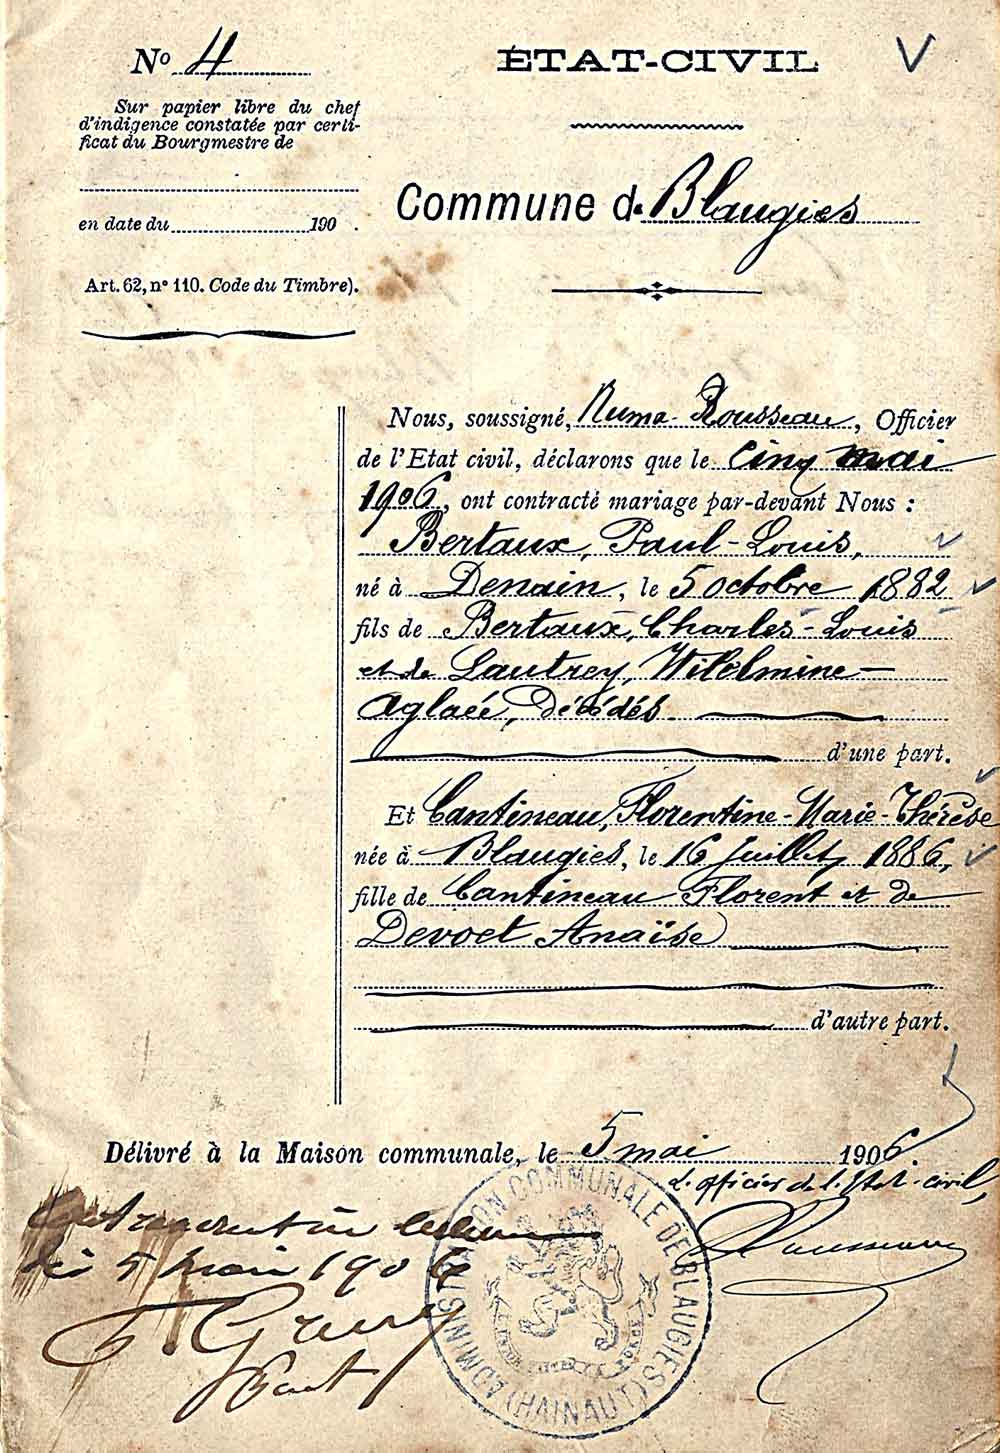 N° 4
Sur papier libre du chef
d'indigence constatée par certi-
ficat du Bourgmestre de
en date du 190 .
Art. 62, n° 110. Code du Timbre).
ÉTAT-CIVIL
V
Commune de Blaugies
Nous, soussigné, Numa Rousseau, Officier
de l'Etat civil, déclarons que le cinq mai
1906, ont contracté mariage par-devant Nous :
Bertaux, Paul-Louis,
né à Denain, le 5 octobre 1882
fils de Bertaux, Charles-Louis
et de Lautrey, Wilelmine-
Aglaée, Décédés
d'une part.
Et Cantineau, Florentine-Marie-Thérèse
née à Blaugies, le 16 Juillet 1886,
fille de Cantineau Florent et de
Devoet Anaïse
d'autre part.
Délivré à la Maison communale, le 5 mai 1906.
L'officier de l'Etat-civil,
Rousseau
5 mai 1906
ADMINISTRATION COMMUNALE DE BLAUGIES (HAINAUT)